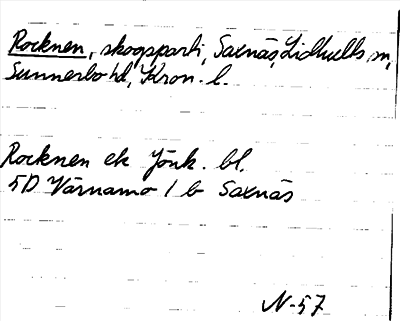 Rocknen, skogsparti, Saxnäs, Lidhults sn,
Sunnerbo hd, Kron. l.
Rocknen ek Jönk. bl.
5D Värnamo 1 b Saxnäs
N-57